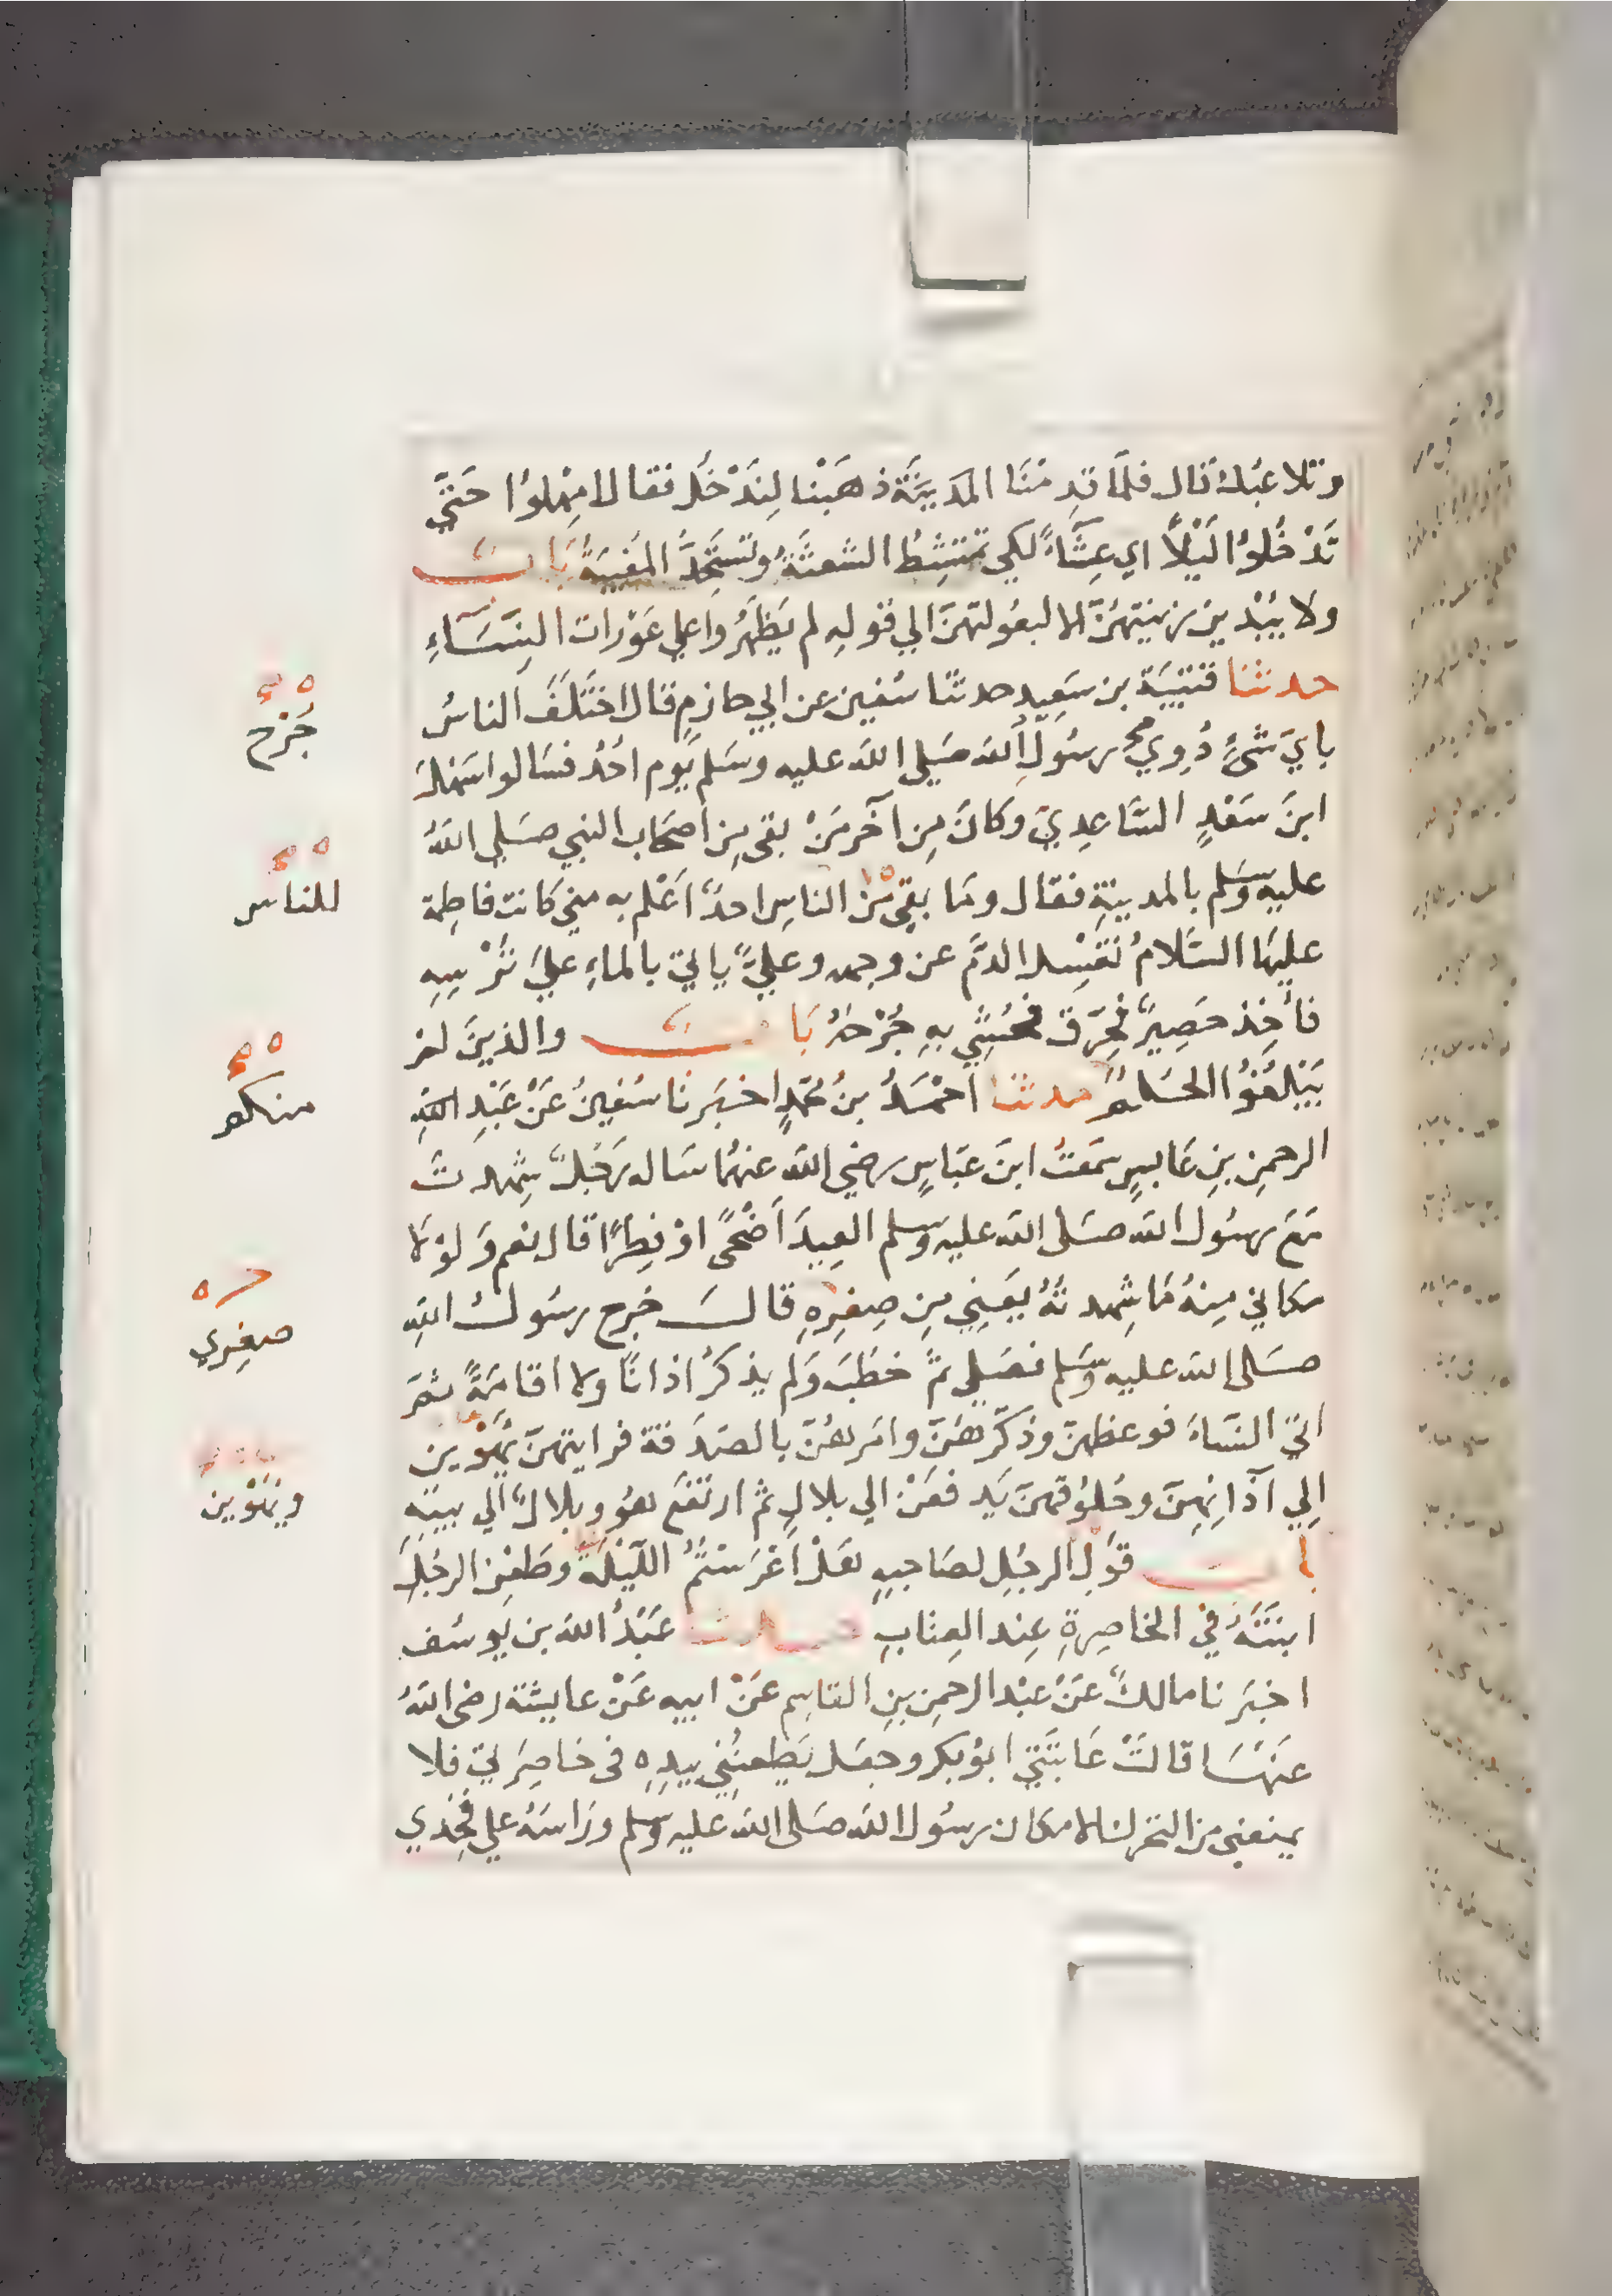 وتلاعبك قال فلمّا قدِمْنَا المدَيَنَة ذهَبْنا لِنَدْخُل فقال امْهِلوُا حَتّي
تَدْخُلُوا لَيْلاً اي عِشَآءً لكي تمتشِطُ الشعثَةُ وتَسْتَحِدَّ المُغيبَةُ بَاب
ولا يُبْدين زينتهُنَّ الا لبعُولتهنّ الي قولهِ لم يَظهَرُوا علي عَوْرات النِسَآءِ
حدثنا قتيبَة بن سَعِيد حدثنا سُفين عن ابي حازمٍ قال اختَلَفَ الناسُ
باي شئ دُوِي رسُول الله صَلي الله عليه وسَلم يَوم احُد فسَالوا سَهْلَ
ابنَ سَعْدٍ السَّاعِديّ وكانَ مِن آخر مَنْ بقي مِن اصحَاب النبي صَلي اللهُ
عليه وسَلم بالمدينةِ فقال ومَا بقي مِنَ الناسِ احدٌ اعْلم به مني كانت فاطِمة
عليهَا السَّلامُ تغسِل الدَّم عن وجهه وعليٌّ ياتي بالماءِ عليَ تُرْسِهِ
فأُخِذ حَصِيرٌ فحُرّق فحُشِيَ بهِ جُرْحُهُ بَاب والذينَ لم
يَبْلغُوُا الحُلُمَ حدثنا احْمَدُ بنُ محمّدٍ اخبَرنا سُفينُ عَنْ عَبْدِ اللهِ
الرحمنِ بنِ عَابسٍ سمَعتُ ابنَ عَبّاسٍ رضي الله عنهُما سَاله رَجُلٌ شِهدتَ
مَعَ رسُول الله صَلى الله عليه وسَلم العِيدَ اَضْحًى اوْ فِطرًا قال نعم وَلوْلَا
مكاني مِنهُ مَا شِهدتهُ يَعنِي مِن صِغرِهِ قالَ خرج رسُولُ اللهِ
صَلى الله عليه وسَلم فصَلي ثمَّ خطبَ وَلم يذكرُ اذانًا ولا اقامَةً ثمَّ
اتيَ النسَاءَ فوعظهنّ وذكّرهُنَّ وامَرهُنّ بالصَدَقة فرايتهنّ يُهوْين
اِلي آذانِهِنَّ وحُلوُقهنّ يَدفعْنَ الي بلالٍ ثم ارتفعَ هوُ وبلالٌ الي بيتهِ
باب قَوْلِ الرجُلِ لصَاحِبهِ هَلْ اعْرَسْتمُ اللّيْلَةَ وطَعْنِ الرجُلِ
ابنَتَهُ في الخاصِرةِ عِند العِتابِ حدثنا عَبْدُ الله بن يوسُف
اخبَرنا مالكٌ عَنْ عبْد الرحمنِ بنِ القاسِم عَنْ ابيه عَنْ عايشة رضي اللهُ
عَنهَا قالتْ عَاتبَني ابوُ بكر وجعَل يَطعنُني بيدهِ فى خاصِرَتي فلا
يمنعني من التحرك الا مكان رسُول الله صَلى الله عليه وسلم ورَاسَهُ علي فخِذي
جُرْح
للناس
منكم
صغِري
ويَهْوين